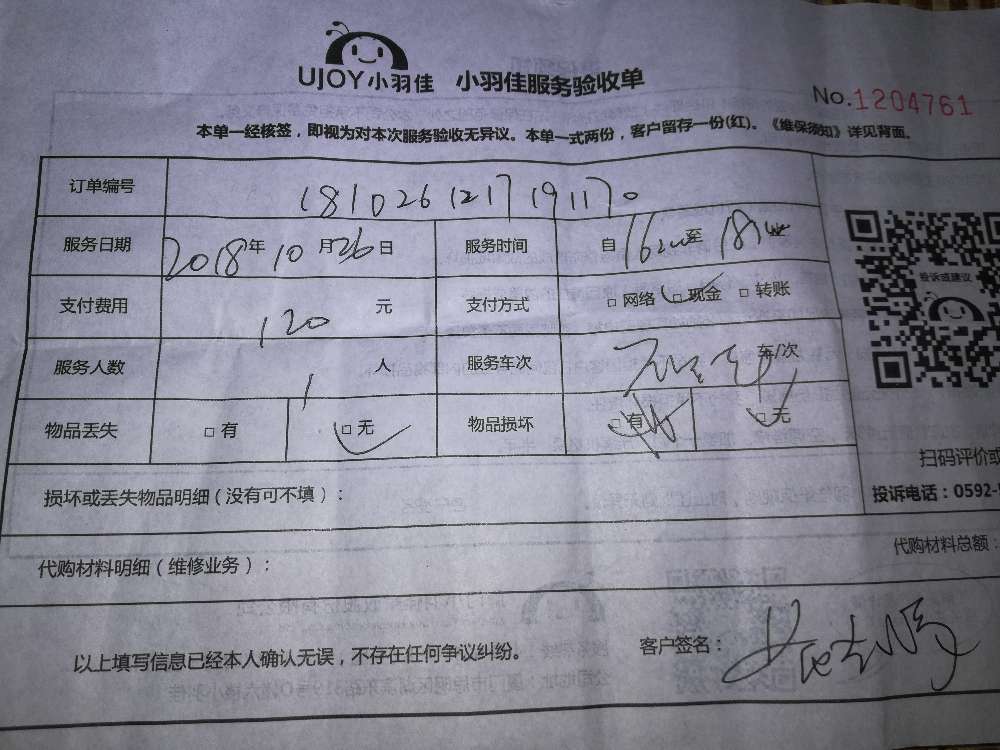 UJOY小羽佳 小羽佳服务验收单
No.1204761
本单一经核签，即视为对本次服务验收无异议。本单一式两份，客户留存一份(红)。《维保须知》详见背面。
订单编号 181026121719117０
服务日期 2018年10月26日 服务时间 自 至
支付费用 120 元 支付方式 □网络 □现金 □转账
投诉或建议
服务人数 1 人 服务车次 车/次
物品丢失 □有 □无 物品损坏 □有 □无
扫码评价或
损坏或丢失物品明细（没有可不填）：
投诉电话：0592-
代购材料明细（维修业务）：
代购材料总额：
以上填写信息已经本人确认无误，不存在任何争议纠纷。
客户签名：